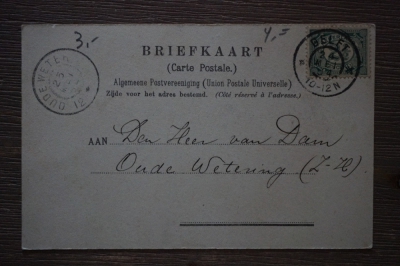 3,-
4,=
BRIEFKAART
(Carte Postale.)
Algemeene Postvereeniging (Union Postale Universelle)
Zijde voor het adres bestemd. (Côté réservé à l'adresse.)
OUDEWETERING
10-12N
AAN Den Heer van Dam
Oude Wetering (Z-H)